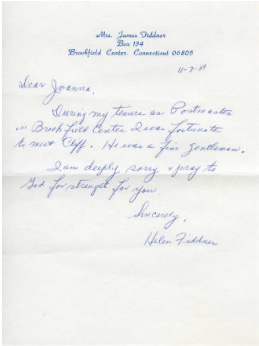 Mrs. James Fiddner
Box 134
Brookfield Center, Connecticut 06805
11-7-
Dear Joanna,
During my tenure as Postmaster
in Brookfield Center I was fortunate
to meet Cliff. He was a fine gentleman.
I am deeply sorry & pray to
God for strength for you
Sincerely,
Helen Fiddner